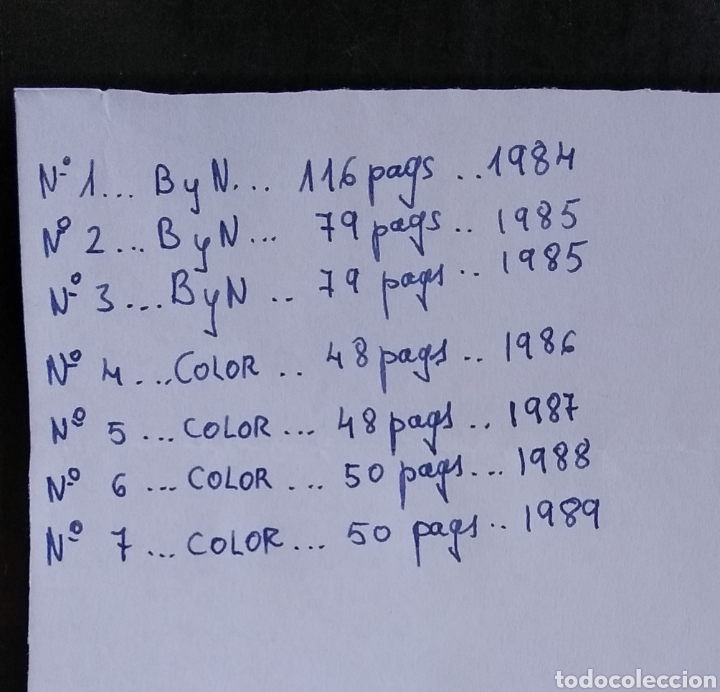 Nº 1... B y N... 116 pags ..1984
Nº 2... B y N... 79 pags.. 1985
Nº 3... B y N .. 79 pags.. 1985
Nº 4...COLOR .. 48 pags.. 1986
Nº 5 ...COLOR... 48 pags.. 1987
Nº 6 ...COLOR ... 50 pags... 1988
Nº 7 ...COLOR... 50 pags.. 1989
todocoleccion